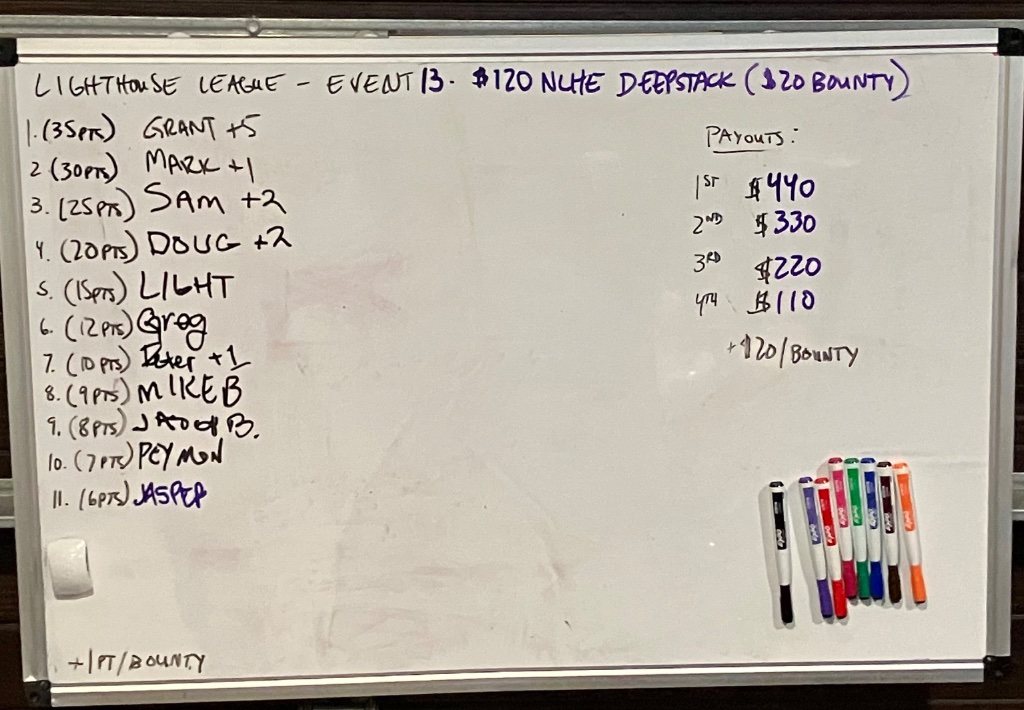 LIGHTHOUSE LEAGUE - EVENT 13. $120 NLHE DEEPSTACK ($20 BOUNTY)
1. (35PTS) GRANT +5
2 (30PTS) MARK +1
3. (25PTS) SAM +2
4. (20PTS) DOUG +2
5. (15PTS) LIGHT
6. (12PTS) Greg
7. (10PTS) +1
8. (9PTS) MIKE B
9. (8PTS) JACOB B.
10. (7PTS) PEYMON
11. (6PTS) JASPER
+1PT/BOUNTY
PAYOUTS:
1ST $440
2ND $330
3RD $220
4TH $110
+$20/BOUNTY